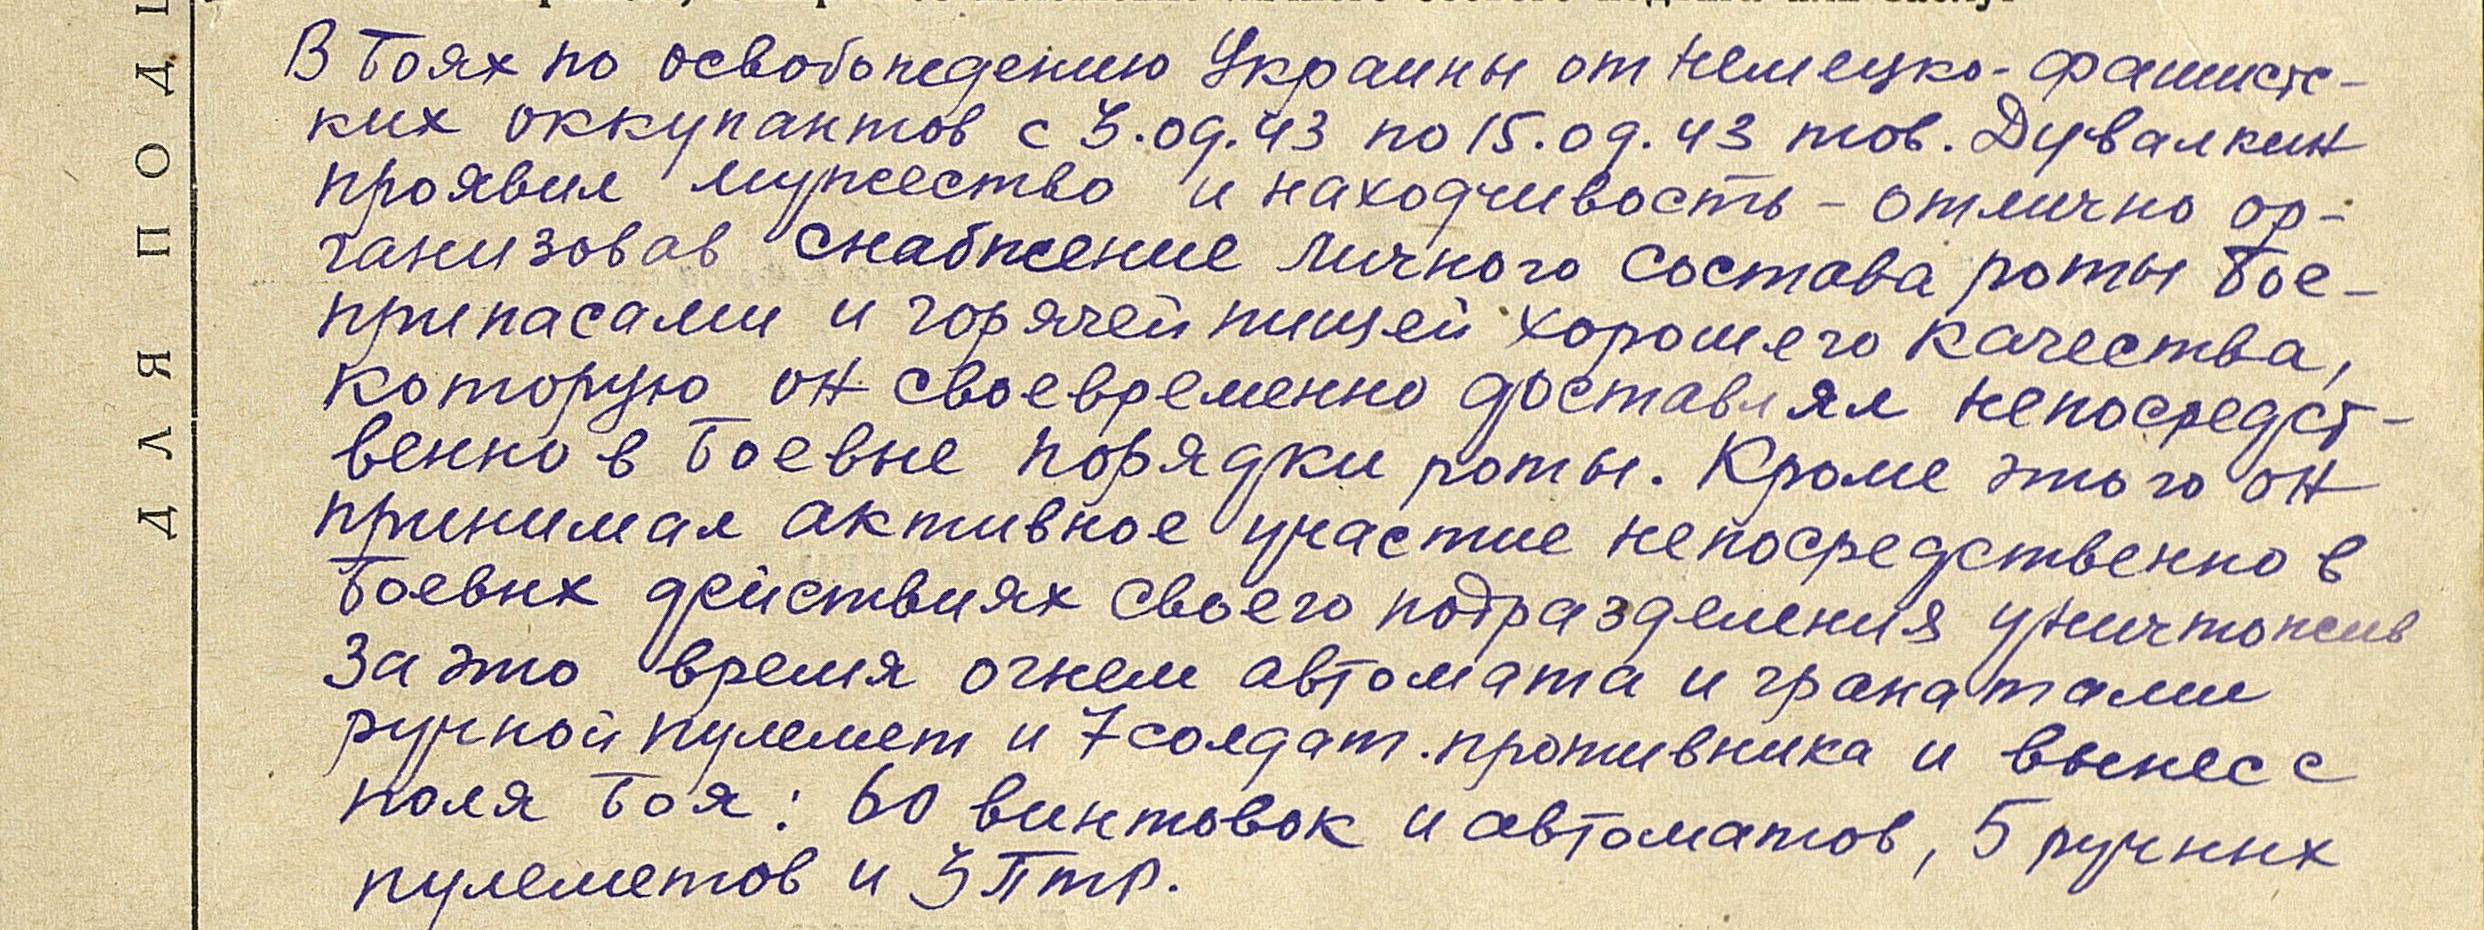 В боях по освобождению Украины от немецко-фашистс-
ких оккупантов с 3.09.43 по 15.09.43 тов. Дувалкин
проявил мужество и находчивость - отлично ор-
ганизовав снабжение личного состава роты бое-
припасами и горячей пищей хорошего качества,
которую он своевременно доставлял непосредст-
венно в боевые порядки роты. Кроме этого он
принимал активное участие непосредственно в
боевых действиях своего подразделения уничтожив
за это время огнем автомата и гранатами
ручной пулемет и 7 солдат противника и вынес с
поля боя: 60 винтовок и автоматов, 5 ручных
пулеметов и 3 ПТР.
ДЛЯ ПОД